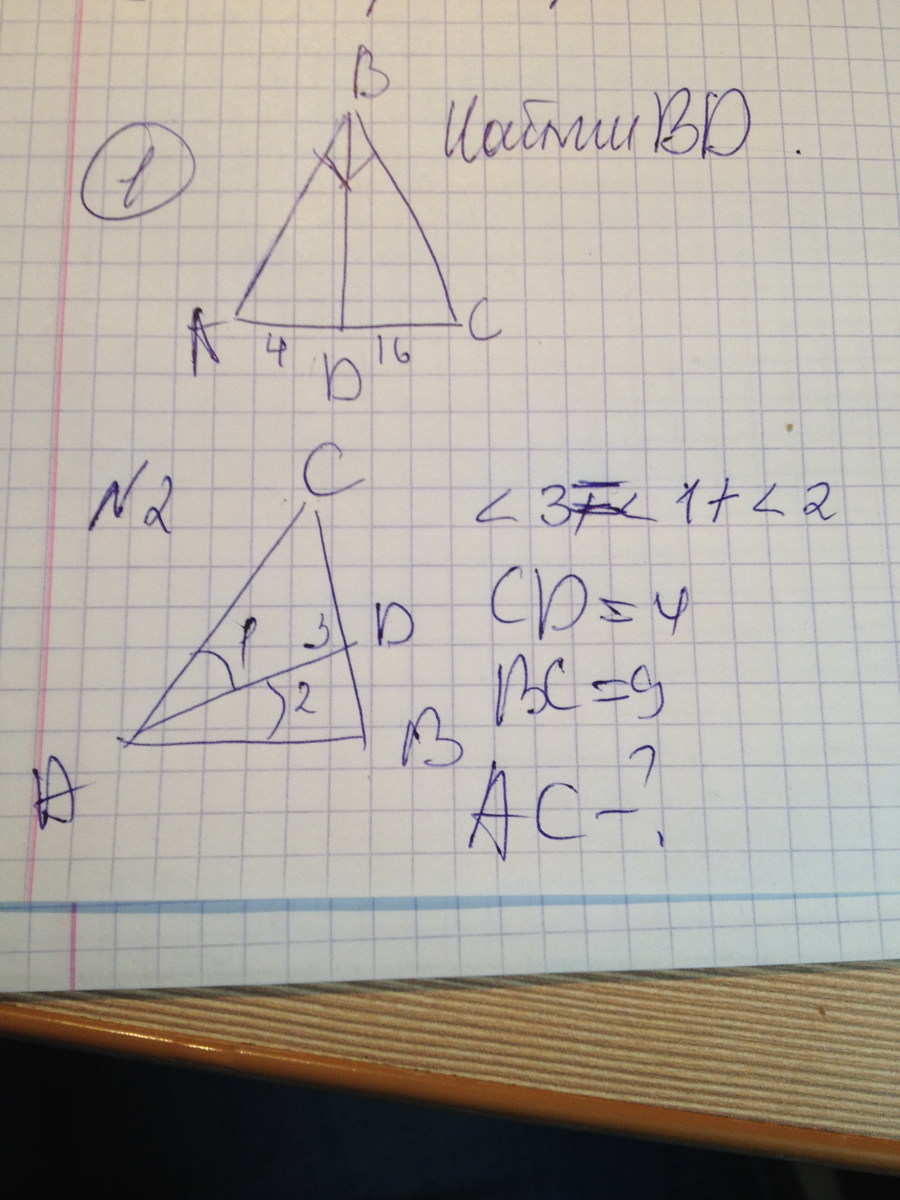 B
1
Найти BD.
A
4
D
16
C
N2
C
< 3 = < 1 + < 2
1
3
D
CD = 4
2
BC = 9
B
A
AC - ?